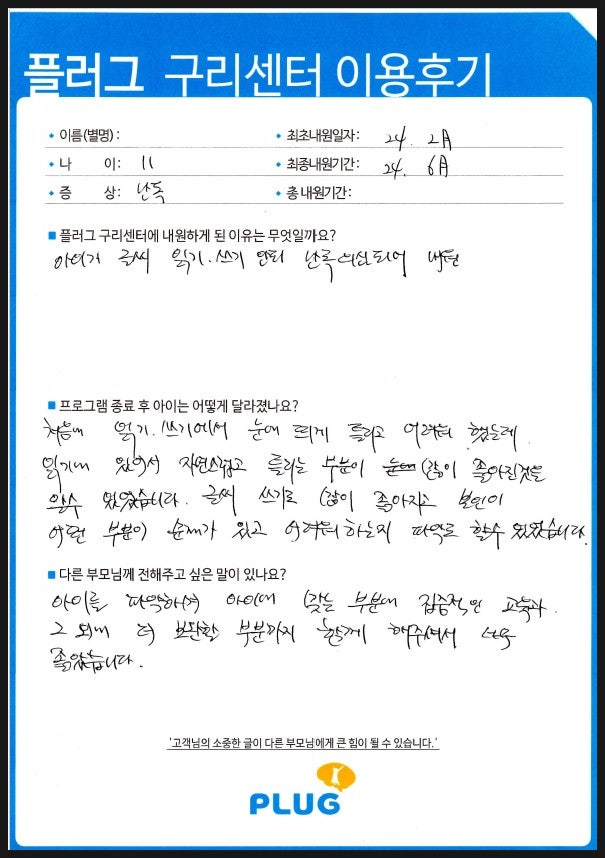 플러그 구리센터 이용후기
이름(별명) : 최초내원일자 : 24. 2月
나 이 : 11 최종내원기간 : 24. 6月
증 상 : 난독 총 내원기간 :
플러그 구리센터에 내원하게 된 이유는 무엇일까요?
아이가 글씨 읽기.쓰기 안되 난독 의심되어 내원
프로그램 종료 후 아이는 어떻게 달라졌나요?
처음에 읽기.쓰기에서 눈에 띄게 틀리고 어려워 했는데
읽기에 있어서 자연스럽고 틀리는 부분이 많이 좋아진것을
알수 있었습니다. 글씨 쓰기도 많이 좋아지고 본인이
어떤 부분이 문제가 있고 어려워하는지 파악도 할수 있었습니다.
다른 부모님께 전해주고 싶은 말이 있나요?
아이를 파악하여 아이에 맞는 부분에 집중적인 교육과
그 외에 더 보완할 부분까지 함께 해주셔서 너무
좋았습니다.
'고객님의 소중한 글이 다른 부모님에게 큰 힘이 될 수 있습니다.'
PLUG